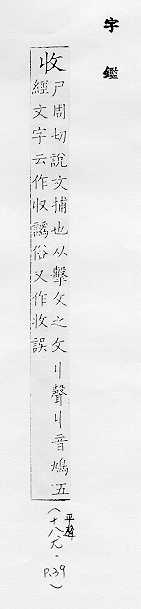 字鑑
收
尸周切說文捕也从擊攴之攴丩聲丩音鳩五
經文字云作収譌俗又作妆誤
平聲
(十八尤.
P.39)